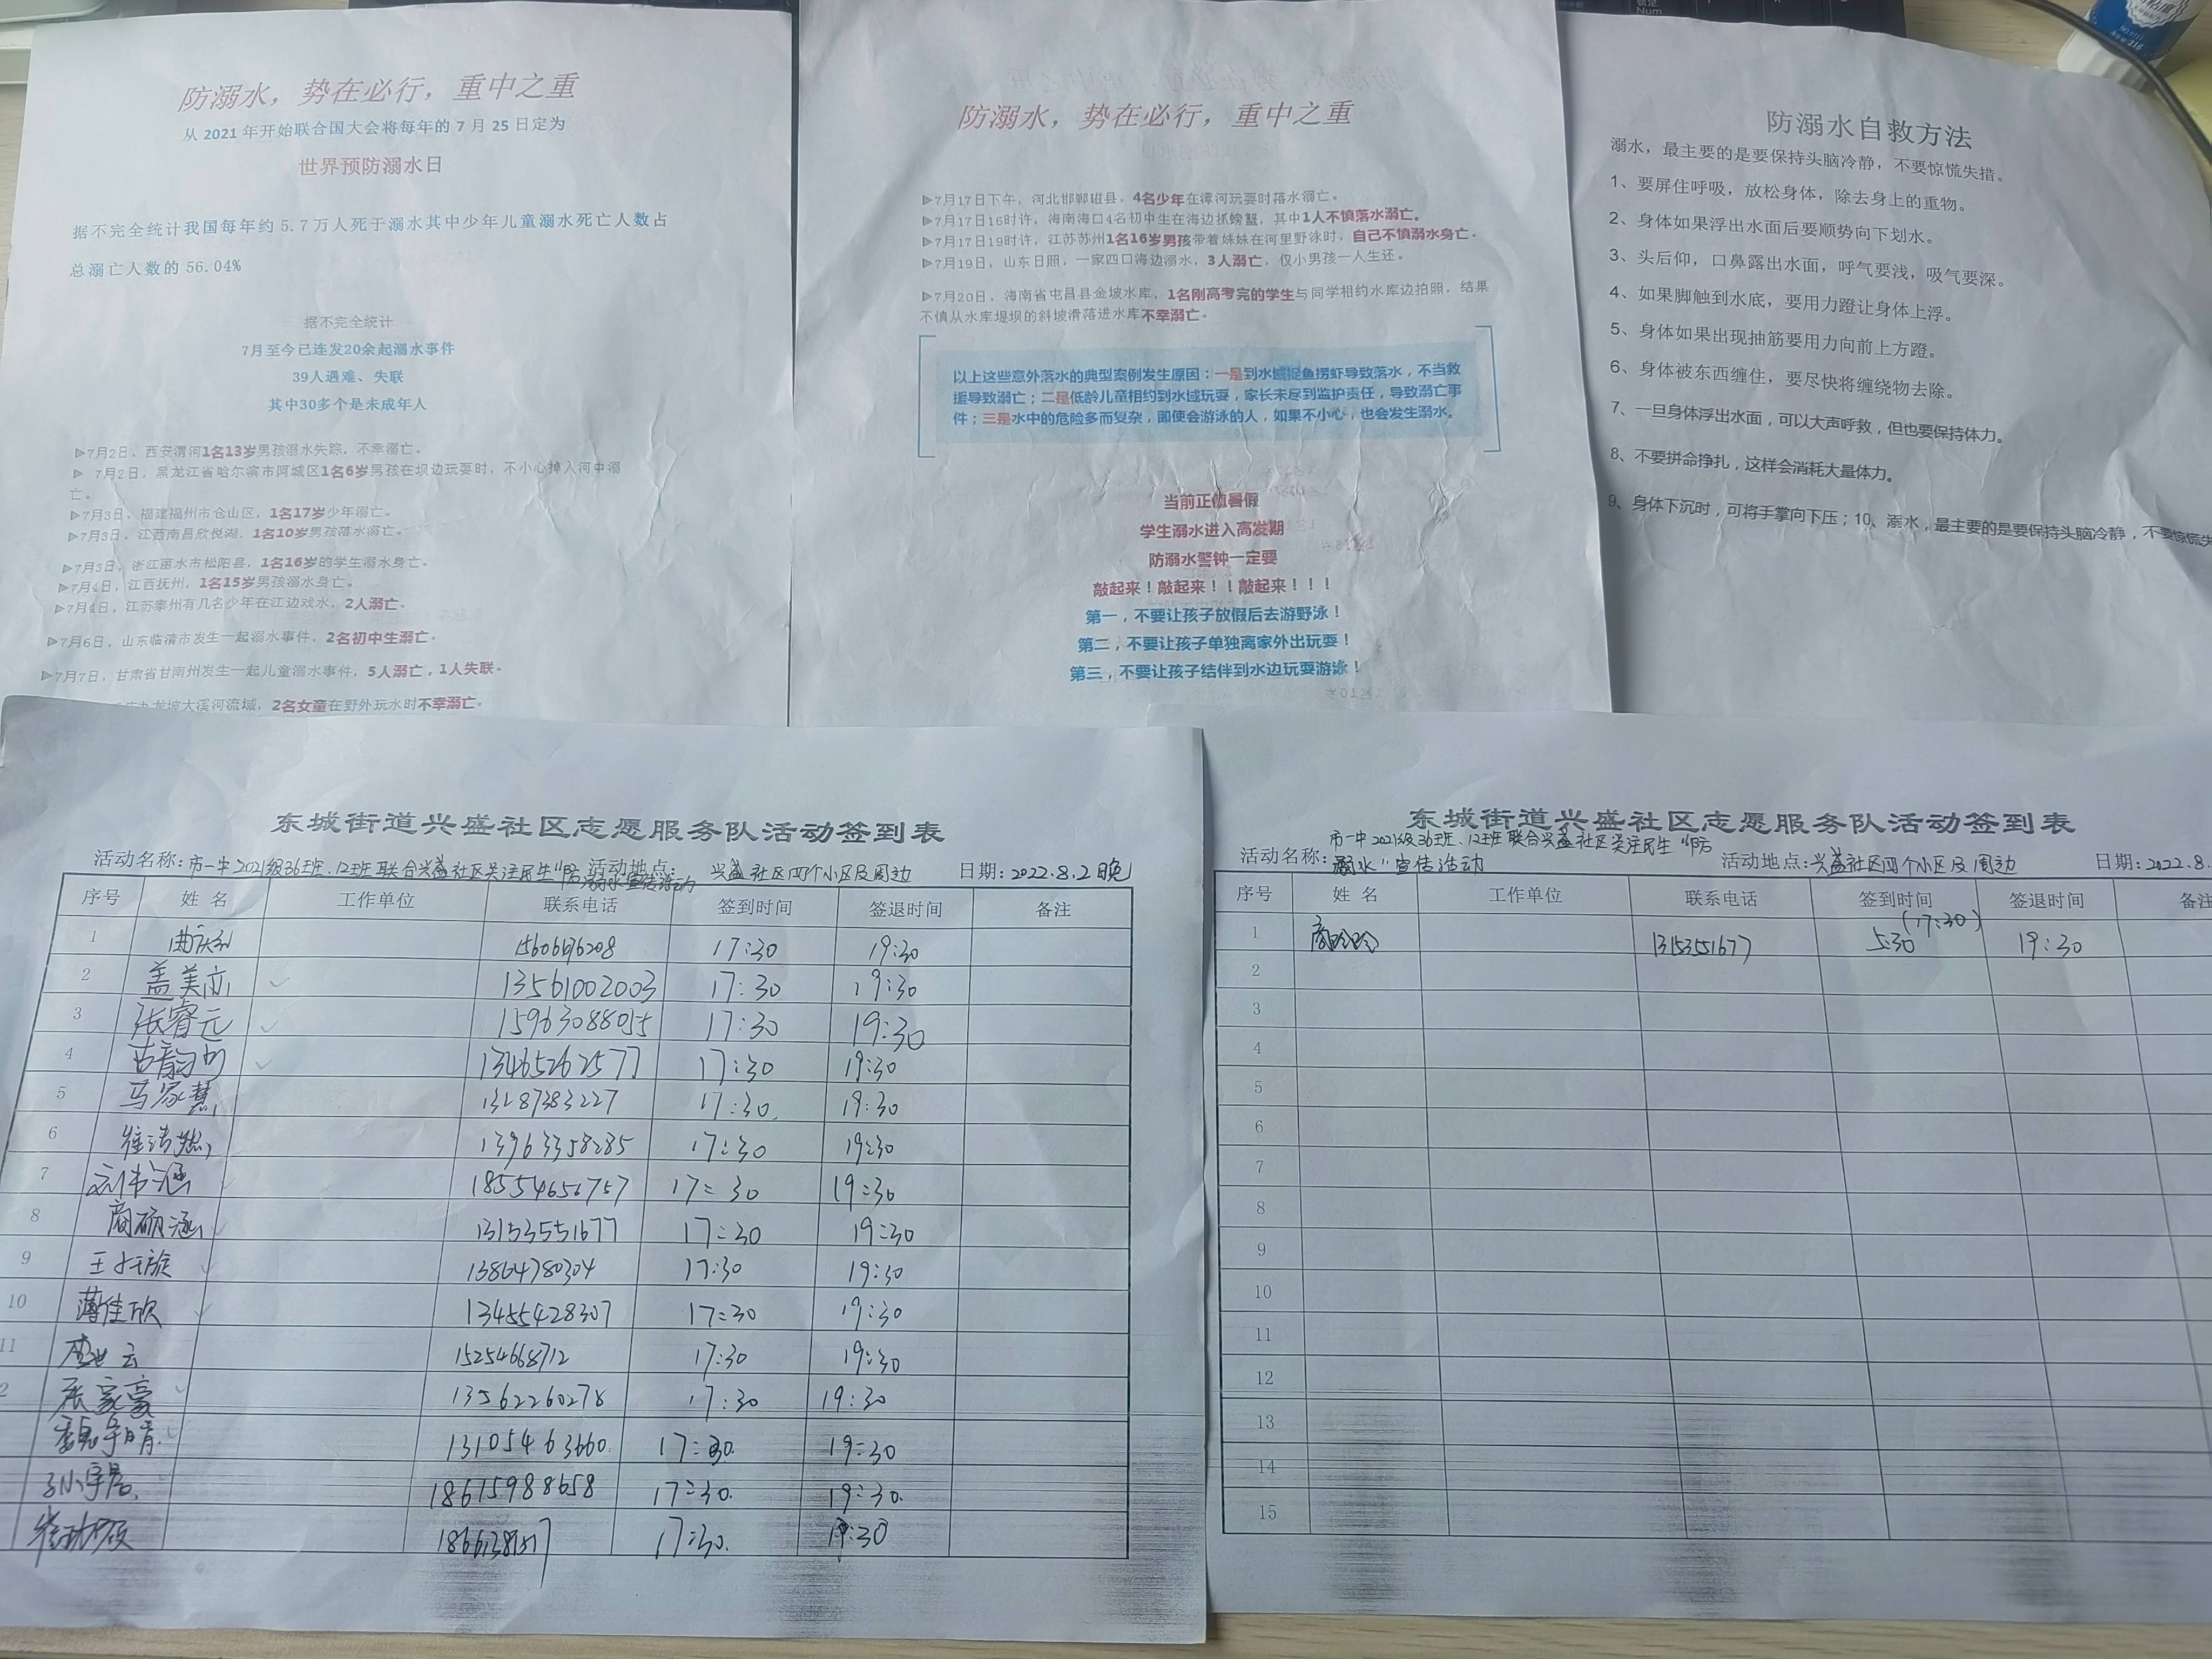 防溺水，势在必行，重中之重
从 2021 年开始联合国大会将每年的 7 月 25 日定为
世界预防溺水日
据不完全统计我国每年约 5.7 万人死于溺水其中少年儿童溺水死亡人数占
总溺亡人数的 56.04%
据不完全统计
7月至今已连发20余起溺水事件
39人遇难、失联
其中30多个是未成年人
▷7月2日，西安渭河1名13岁男孩溺水失踪，不幸溺亡。
▷ 7月2日，黑龙江省哈尔滨市阿城区1名6岁男孩在坝边玩耍时，不小心掉入河中溺
亡。
▷7月3日，福建福州市仓山区，1名17岁少年溺亡。
▷7月3日，江西南昌欣悦湖，1名10岁男孩落水溺亡。
▷7月3日，浙江丽水市松阳县，1名16岁的学生溺水身亡。
▷7月4日，江西抚州，1名15岁男孩溺水身亡。
▷7月4日，江苏泰州有几名少年在江边戏水，2人溺亡。
▷7月6日，山东临清市发生一起溺水事件，2名初中生溺亡。
▷7月7日，甘肃省甘南州发生一起儿童溺水事件，5人溺亡，1人失联。
九龙坡大溪河流域，2名女童在野外玩水时不幸溺亡。
防溺水，势在必行，重中之重
▷7月17日下午，河北邯郸磁县，4名少年在漳河玩耍时落水溺亡。
▷7月17日16时许，海南海口4名初中生在海边抓螃蟹，其中1人不慎落水溺亡。
▷7月17日19时许，江苏苏州1名16岁男孩带着妹妹在河里野泳时，自己不慎溺水身亡。
▷7月19日，山东日照，一家四口海边溺水，3人溺亡，仅小男孩一人生还。
▷7月20日，海南省屯昌县金坡水库，1名刚高考完的学生与同学相约水库边拍照，结果
不慎从水库堤坝的斜坡滑落进水库不幸溺亡。
以上这些意外落水的典型案例发生原因：一是到水域捉鱼捞虾导致落水，不当救
援导致溺亡；二是低龄儿童相约到水域玩耍，家长未尽到监护责任，导致溺亡事
件；三是水中的危险多而复杂，即使会游泳的人，如果不小心，也会发生溺水。
当前正值暑假
学生溺水进入高发期
防溺水警钟一定要
敲起来！敲起来！！敲起来！！！
第一，不要让孩子放假后去游野泳！
第二，不要让孩子单独离家外出玩耍！
第三，不要让孩子结伴到水边玩耍游泳！
防溺水自救方法
溺水，最主要的是要保持头脑冷静，不要惊慌失措。
1、要屏住呼吸，放松身体，除去身上的重物。
2、身体如果浮出水面后要顺势向下划水。
3、头后仰，口鼻露出水面，呼气要浅，吸气要深。
4、如果脚触到水底，要用力蹬让身体上浮。
5、身体如果出现抽筋要用力向前上方蹬。
6、身体被东西缠住，要尽快将缠绕物去除。
7、一旦身体浮出水面，可以大声呼救，但也要保持体力。
8、不要拼命挣扎，这样会消耗大量体力。
9、身体下沉时，可将手掌向下压；10、溺水，最主要的是要保持头脑冷静，不要惊慌失
东城街道兴盛社区志愿服务队活动签到表
活动名称：市一中2021级36班、12班联合兴盛社区关注民生"防溺水"宣传活动 活动地点：兴盛社区四个小区及周边 日期：2022.8.2晚
序号 姓名 工作单位 联系电话 签到时间 签退时间 备注
1 17:30 19:30
2 盖美亦 13561002003 17:30 19:30
3 张睿元 15963088055 17:30 19:30
4 13465262577 17:30 19:30
5 马家慧 13287383227 17:30 19:30
6 13963358285 17:30 19:30
7 18554656757 17:30 19:30
8 商硕涵 13153551677 17:30 19:30
9 13864780304 17:30 19:30
10 薄佳欣 13455428307 17:30 19:30
11 15254668712 17:30 19:30
2 张家豪 13562260278 17:30 19:30
魏宇晴 13105463660 17:30 19:30
孙宇 18615988658 17:30 19:30
17:30 19:30
东城街道兴盛社区志愿服务队活动签到表
活动名称：市一中2021级36班、12班联合兴盛社区关注民生"防
溺水"宣传活动 活动地点：兴盛社区四个小区及周边 日期：2022.8.
序号 姓名 工作单位 联系电话 签到时间 签退时间 备注
1 商玲玲 1315351677 5:30 (17:30) 19:30
2
3
4
5
6
7
8
9
10
11
12
13
14
15